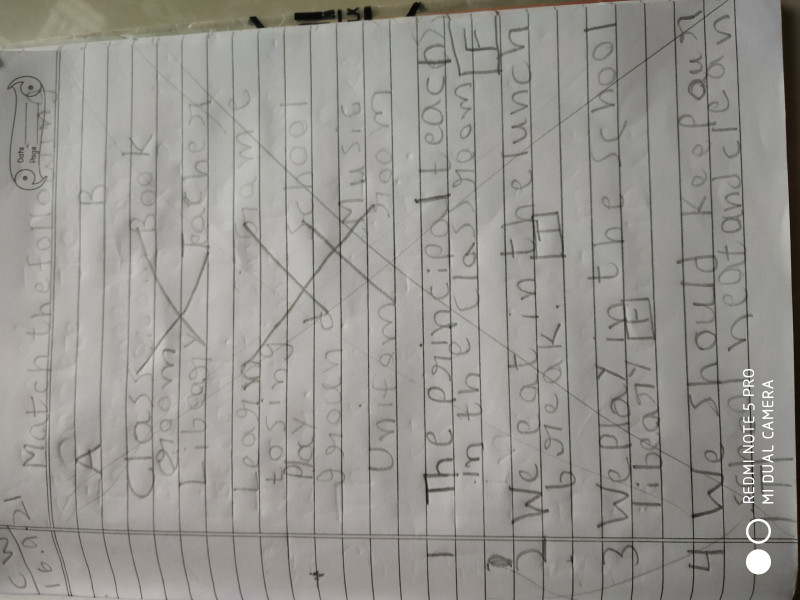 C W
16.9.21
Match the following
Date
Page
A B
Class Book
room
Library Teacher
Learn Game
to sing
Play School
ground
Music
Uniform room
1 The principal teach
in the classroom F
2 We eat in the lunch
break. T
3 We play in the school
libeary F
4 We should keep our
neat and clean
REDMI NOTE 5 PRO
MI DUAL CAMERA